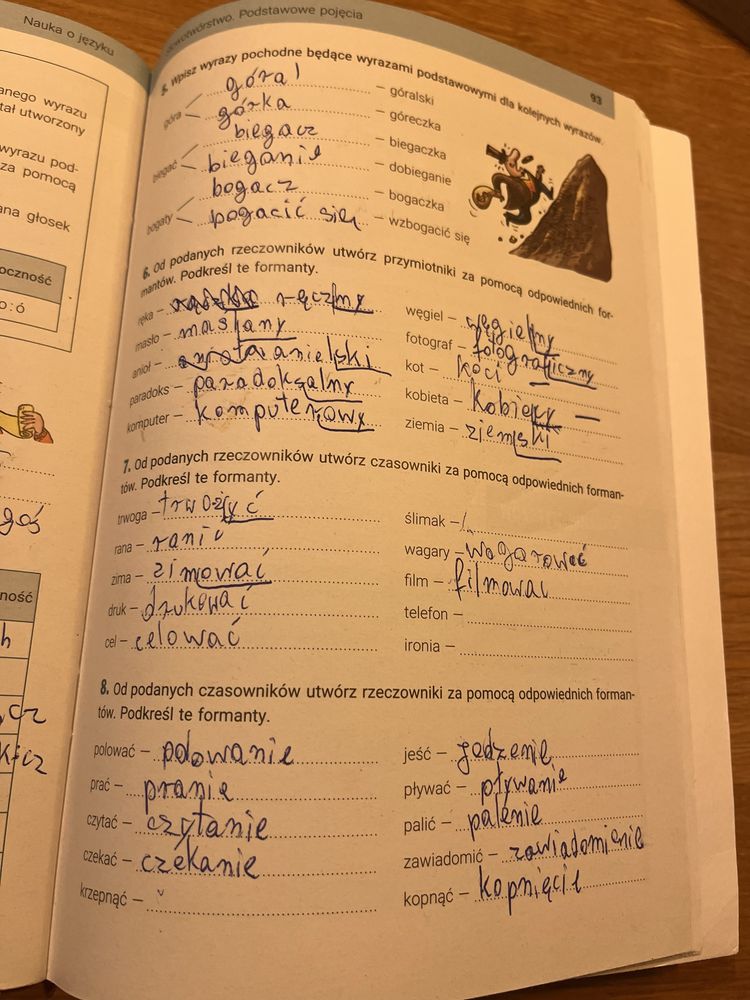 Nauka o języku
owotwórstwo. Podstawowe pojęcia
93
anego wyrazu
tał utworzony
wyrazu pod-
za pomocą
ana głosek
oczność
o : ó
goś
ność
h
cz
kicz
5. Wpisz wyrazy pochodne będące wyrazami podstawowymi dla kolejnych wyrazów.
góral – góralski
góra
górka – góreczka
biegacz – biegaczka
biegać
bieganie – dobieganie
bogacz – bogaczka
bogaty
bogacić się – wzbogacić się
6. Od podanych rzeczowników utwórz przymiotniki za pomocą odpowiednich for-
mantów. Podkreśl te formanty.
ręka – ręczny
masło – maślany
anioł – anielski
paradoks – paradoksalny
komputer – komputerowy
węgiel – węgielny
fotograf – fotograficzny
kot – koci
kobieta – kobie
ziemia – ziemski
7. Od podanych rzeczowników utwórz czasowniki za pomocą odpowiednich forman-
tów. Podkreśl te formanty.
trwoga – trwożyć
rana – ranić
zima – zimować
druk – drukować
cel – celować
ślimak –
wagary – wagarować
film – filmować
telefon –
ironia –
8. Od podanych czasowników utwórz rzeczowniki za pomocą odpowiednich forman-
tów. Podkreśl te formanty.
polować – polowanie
prać – pranie
czytać – czytanie
czekać – czekanie
krzepnąć –
jeść – jedzenie
pływać – pływanie
palić – palenie
zawiadomić – zawiadomienie
kopnąć – kopnięcie